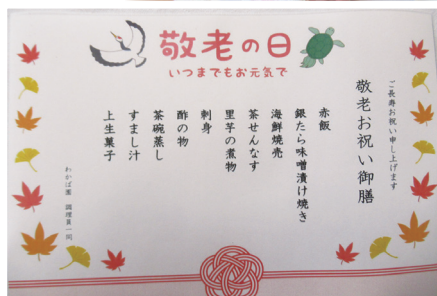 敬老の日
いつまでもお元気で
ご長寿お祝い申し上げます
敬老お祝い御膳
赤飯
銀たら味噌漬け焼き
海鮮焼売
茶せんなす
里芋の煮物
刺身
酢の物
茶碗蒸し
すまし汁
上生菓子
わかば園 調理員一同